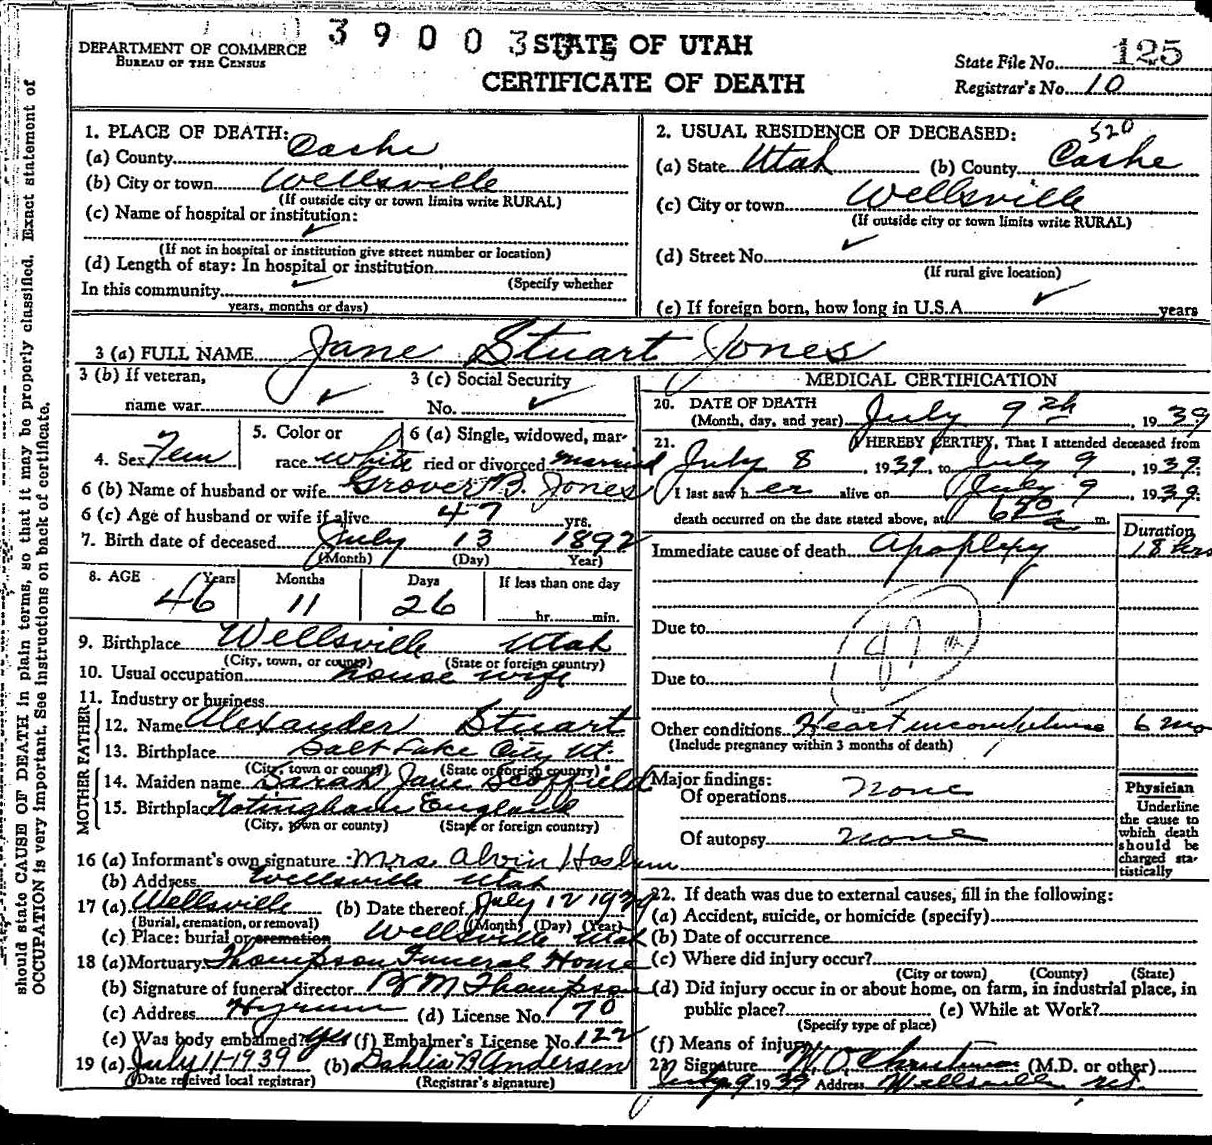 39003
DEPARTMENT OF COMMERCE
BUREAU OF THE CENSUS
STATE OF UTAH
CERTIFICATE OF DEATH
State File No. 125
Registrar's No. 10
should state CAUSE OF DEATH in plain terms, so that it may be properly classified. Exact statement of
OCCUPATION is very important. See instructions on back of certificate.
1. PLACE OF DEATH:
(a) County Cache
(b) City or town Wellsville
(If outside city or town limits write RURAL)
(c) Name of hospital or institution:
✓
(If not in hospital or institution give street number or location)
(d) Length of stay: In hospital or institution
(Specify whether
In this community ✓
years, months or days)
2. USUAL RESIDENCE OF DECEASED:
520
(a) State Utah (b) County Cache
(c) City or town Wellsville
(If outside city or town limits write RURAL)
(d) Street No. ✓
(If rural give location)
(e) If foreign born, how long in U.S.A. ✓ years
3 (a) FULL NAME Jane Stuart Jones
3 (b) If veteran,
name war ✓
3 (c) Social Security
No. ✓
4. Sex Fem
5. Color or
race white
6 (a) Single, widowed, mar-
ried or divorced married
6 (b) Name of husband or wife Grover B. Jones
6 (c) Age of husband or wife if alive 47 yrs.
7. Birth date of deceased July 13 1892
(Month) (Day) Year)
8. AGE Years Months Days If less than one day
46 11 26 hr. min.
9. Birthplace Wellsville Utah
(City, town, or county) (State or foreign country)
10. Usual occupation house wife
11. Industry or business
FATHER
12. Name Alexander Stuart
13. Birthplace Salt Lake City Ut.
(City, town or county) (State or foreign country)
MOTHER
14. Maiden name Sarah Jane Scoffield
15. Birthplace Notingham England
(City, town or county) (State or foreign country)
16 (a) Informant's own signature Mrs. Alvin Haslam
(b) Address Wellsville Utah
17 (a) Wellsville (b) Date thereof July 12 1939
(Burial, cremation, or removal) (Month) (Day) (Year)
(c) Place: burial or cremation Wellsville Utah
18 (a) Mortuary Thompson Funeral Home
(b) Signature of funeral director Thompson
(c) Address Hyrum (d) License No. 170
(e) Was body embalmed? Yes (f) Embalmer's License No. 122
19 (a) July 11-1939 (b) Dahlia B Andersen
(Date received local registrar) (Registrar's signature)
MEDICAL CERTIFICATION
20. DATE OF DEATH
(Month, day, and year) July 9th, 1939
21. I HEREBY CERTIFY, That I attended deceased from
July 8, 1939, to July 9, 1939;
I last saw her alive on July 9, 1939;
death occurred on the date stated above, at 6 50 a m.
Duration
Immediate cause of death Apoplexy 18 hrs
Due to
87
Due to
Other conditions Heart incompetence 6 mo
(Include pregnancy within 3 months of death)
Major findings:
Of operations none
Of autopsy none
Physician
Underline
the cause to
which death
should be
charged sta-
tistically
22. If death was due to external causes, fill in the following:
(a) Accident, suicide, or homicide (specify)
(b) Date of occurrence
(c) Where did injury occur?
(City or town) (County) (State)
(d) Did injury occur in or about home, on farm, in industrial place, in
public place? (e) While at Work?
(Specify type of place)
(f) Means of injury
23 Signature W. O. Christensen (M.D. or other)
July 9 1939 Address Wellsville Ut.